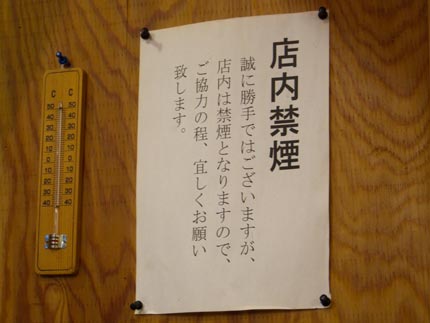 店内禁煙
誠に勝手ではございますが、
店内は禁煙となりますので、
ご協力の程、宜しくお願い
致します。
C C
50 50
40 40
30 30
20 20
10 10
0 0
10 10
20 20
30 30
40 40